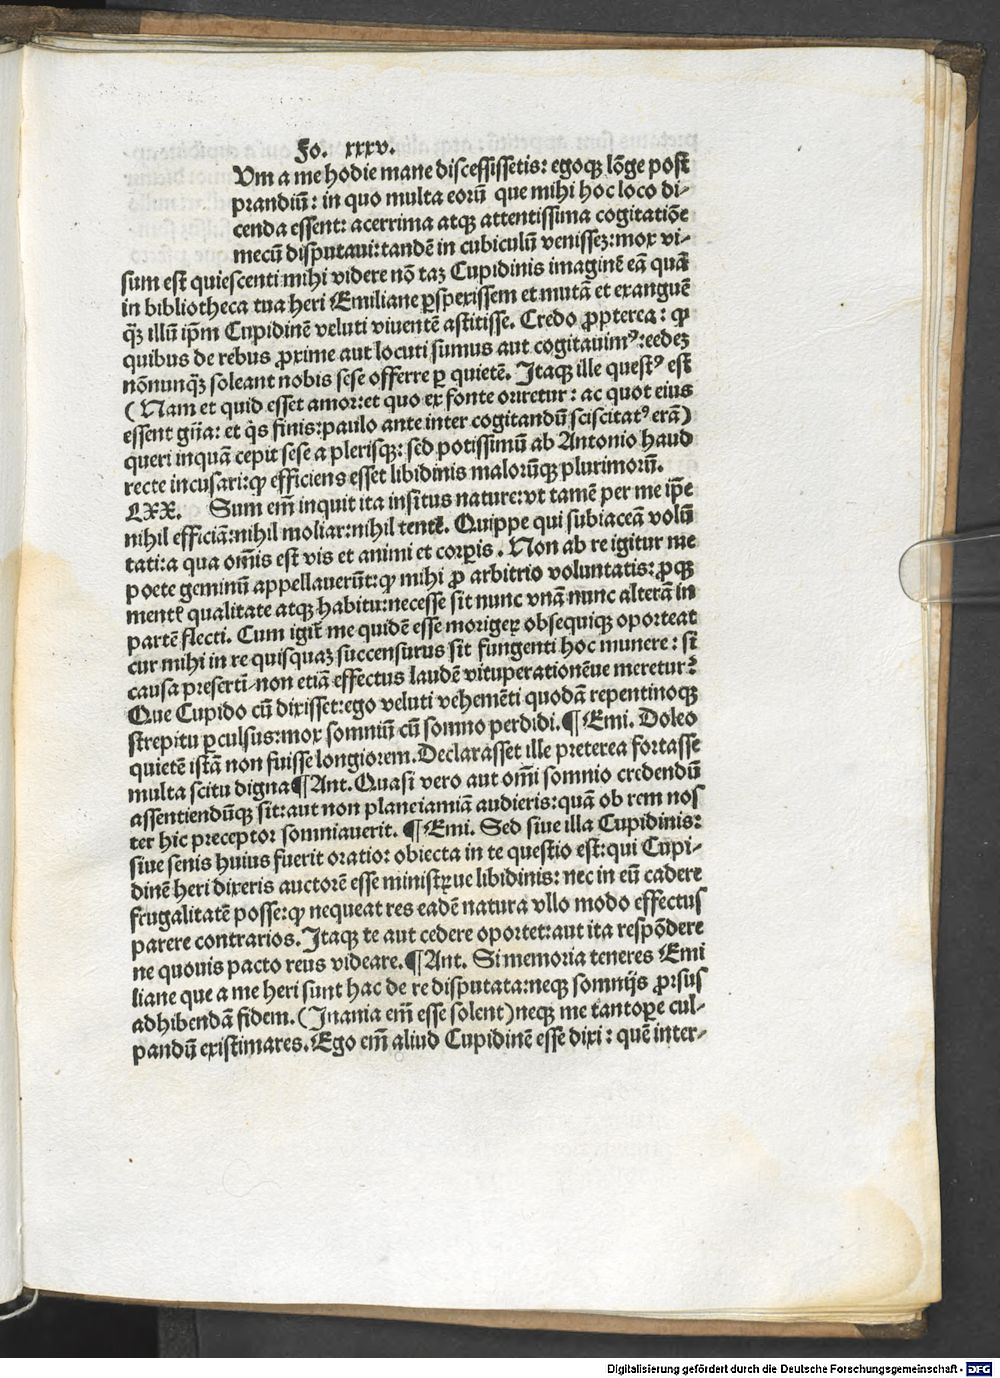 Fo. xxxv.
Vm a me hodie mane discessissetis: egoqꝫ lōge post
prandiū: in quo multa eorū que mihi hoc loco di-
cenda essent: acerrima atqꝫ attentissima cogitatiōe
mecū disputaui: tandē in cubiculū venisseꝫ: mox vi-
sum est quiescenti mihi videre nō taꝫ Cupidinis imaginē eā quā
in bibliotheca tua heri Emiliane ꝑspexissem et mutā et exanguē
qꝫ̄ illū ip̄m Cupidinē veluti viuentē astitisse. Credo ꝓpterea: ꝙ
quibus de rebus ꝓxime aut locuti sumus aut cogitauimꝰ: eedeꝫ
nōnunqꝫ̄ soleant nobis sese offerre ꝑ quietē. Itaqꝫ ille questꝰ est
(Nam et quid esset amor: et quo ex fonte oriretur: ac quot eius
essent gn̄a: et q̇s finis: paulo ante inter cogitandū sciscitatꝰ erā)
queri inquā cepit sese a plerisqꝫ: sed potissimū ab Antonio haud
recte incusari: ꝙ efficiens esset libidinis malorūqꝫ plurimorū.
LXX. Sum em̄ inquit ita insitus nature: vt tamē per me ip̄e
nihil efficiā: nihil moliar: nihil tentē. Quippe qui subiaceā volū
tati: a qua om̄is est vis et animi et corꝑis. Non ab re igitur me
poete geminū appellauerūt: ꝙ mihi ꝓ arbitrio voluntatis: ꝓqꝫ
mentꝭ qualitate atqꝫ habitu: necesse sit nunc vnā nunc alterā in
partē flecti. Cum igit̄ me quidē esse morigeꝝ obsequiqꝫ oporteat
cur mihi in re quisquaꝫ succensurus sit fungenti hoc munere: si
causa presertī non etiā effectus laudē vituperationēue meretur?
Que Cupido cū dixisset: ego veluti vehemēti quodā repentinoqꝫ
strepitu ꝑculsus: mox somniū cū somno perdidi. ¶ Emi. Doleo
quietē istā non fuisse longiorem. Declarasset ille preterea fortasse
multa scitu digna ¶ Ant. Quasi vero aut om̄i somnio credendū
assentiendūqꝫ sit: aut non plane iamiā audieris: quā ob rem nos
ter hic preceptor somniauerit. ¶ Emi. Sed siue illa Cupidinis:
siue senis huius fuerit oratio: obiecta in te questio est: qui Cupi-
dinē heri dixeris auctorē esse ministꝝue libidinis: nec in eū cadere
frugalitatē posse: ꝙ nequeat res eadē natura vllo modo effectus
parere contrarios. Itaqꝫ te aut cedere oportet: aut ita respōdere
ne quouis pacto reus videare. ¶ Ant. Si memoria teneres Emi
liane que a me heri sunt hac de re disputata: neqꝫ somnijs ꝓrsus
adhibendā fidem. (Inania em̄ esse solent) neqꝫ me tantoꝑe cul-
pandū existimares. Ego em̄ aliud Cupidinē esse dixi: quē inter-
Digitalisierung gefördert durch die Deutsche Forschungsgemeinschaft - DFG